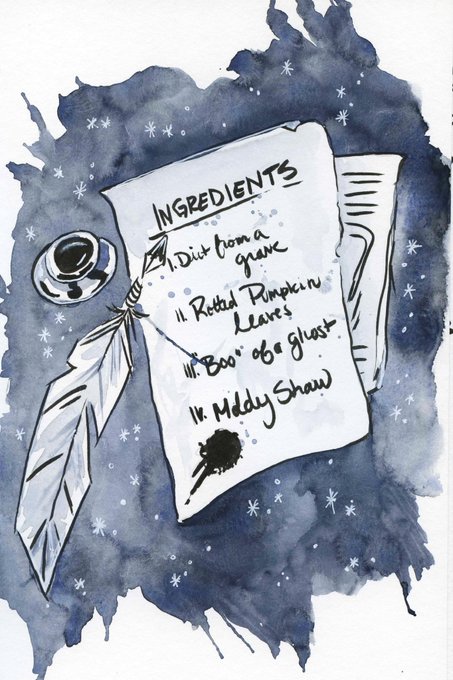 INGREDIENTS
I. Dirt from a
grave
II. Rotted Pumpkin
leaves
III. "Boo" of a ghost
IV. Moldy Shaw